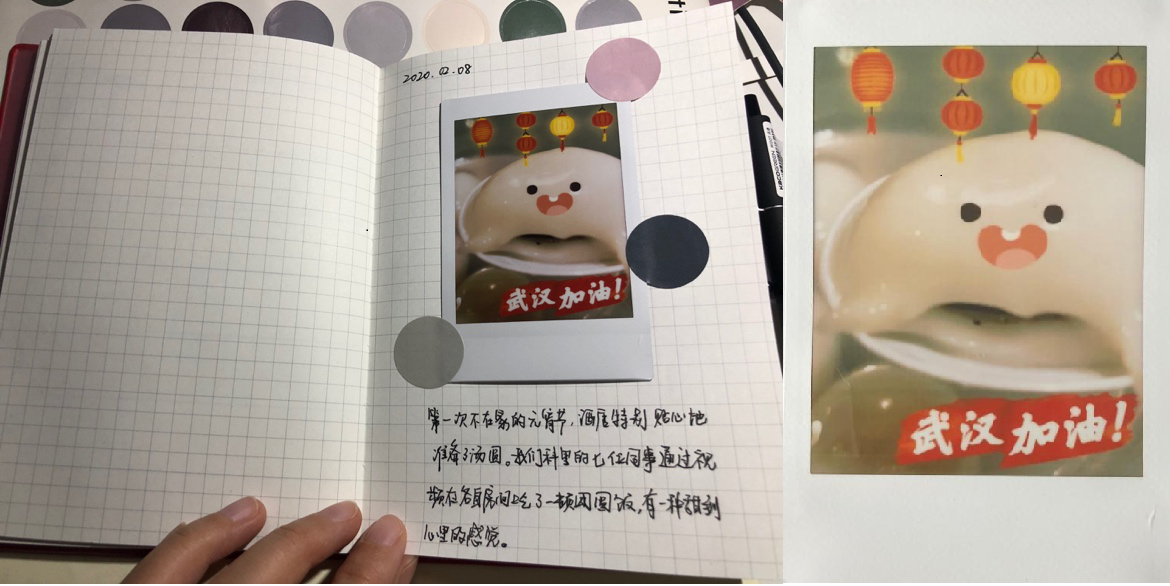 2020.02.08
武汉加油!
第一次不在家的元宵节,酒店特别贴心地
准备了汤圆。我们科里的七位同事通过视
频在各自房间吃了一顿团圆饭,有一种甜到
心里的感觉。
武汉加油!